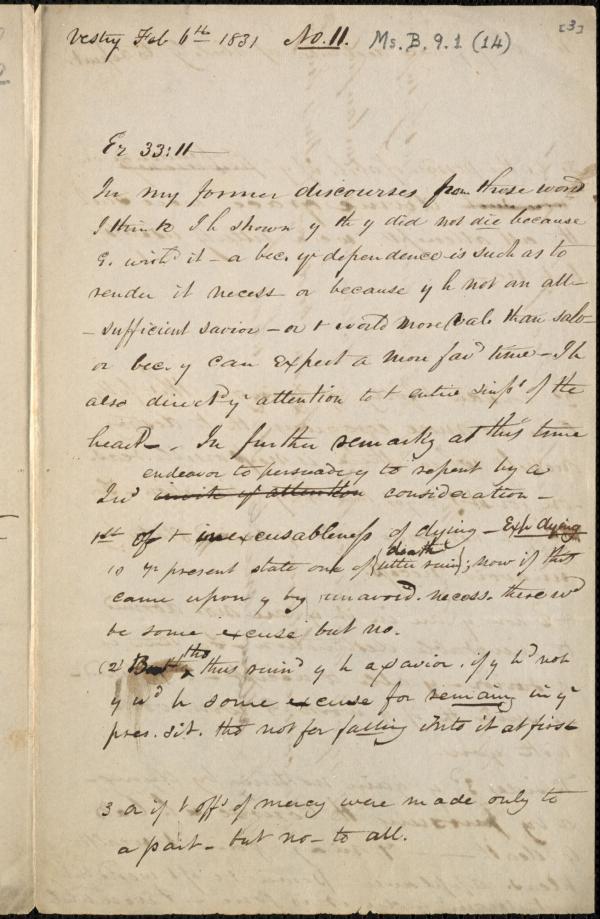 [3]
Vestry Feb 6th 1831 No. 11. Ms. B. 9. 1 (14)
Ez 33:11
In my former discourses from these words
I think I h shown y th y did not die because
G. wishd it - or bec. yr dependence is such as to
render it necess - or because y h not an all-
-sufficient savior - or t world more val. than salv-
or bec. y can expect a more favd time - I h
also directd yr attention to t entire sinfs of the
heart -. In further remarks at this time
endeavor to persuade y to repent by a
I wd consideration -
1st of t inexcusableness of dying - Exp dying
1o yr present state one of death (utter ruin); now if this
came upon y by unavoid. necess. there wd
be some excuse but no.
(2) tho thus ruind y h a savior. if y hd not
y wd h some excuse for remaing in yr
pres. sit. tho not for falling into it at first
3 or if t offs of mercy were made only to
a part - but no - to all.